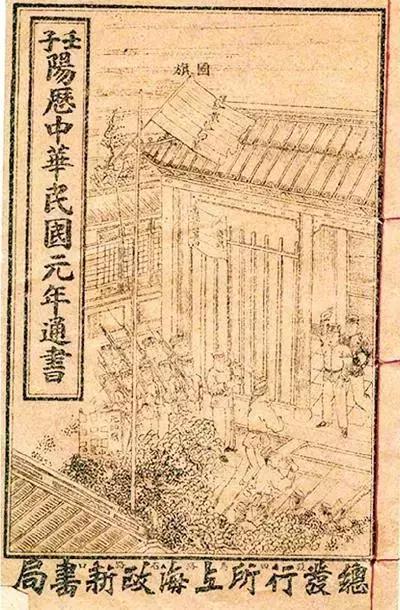 壬子
陽歷中華民國元年通書
國旗
總發行所上海改新書局